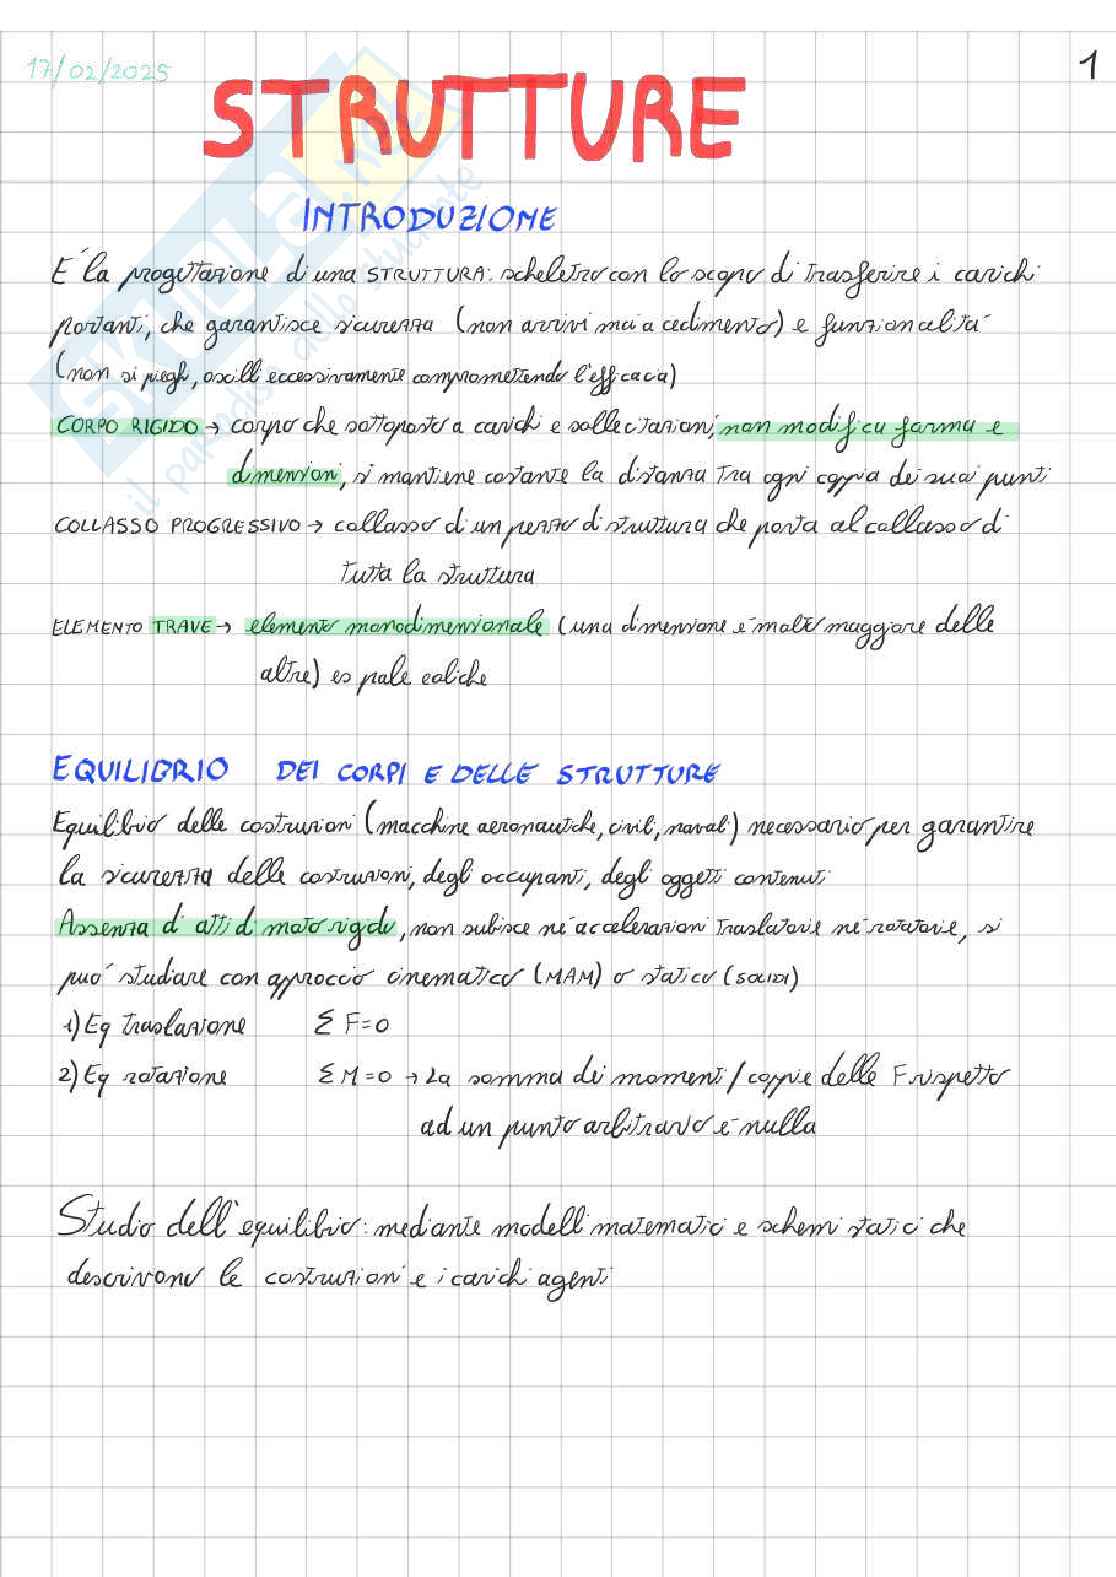 17/02/2025
1
STRUTTURE
INTRODUZIONE
È la progettazione di una STRUTTURA: scheletro con lo scopo di trasferire i carichi
portanti, che garantisce sicurezza (non arrivi mai a cedimento) e funzionalità
(non si pieghi, oscilli eccessivamente compromettendo l'efficacia)
CORPO RIGIDO → corpo che sottoposto a carichi e sollecitazioni, non modifica forma e
dimensioni, si mantiene costante la distanza tra ogni coppia dei suoi punti
COLLASSO PROGRESSIVO → collasso di un pezzo di struttura che porta al collasso di
tutta la struttura
ELEMENTO TRAVE → elemento monodimensionale (una dimensione è molto maggiore delle
altre) es pale eoliche
EQUILIBRIO DEI CORPI E DELLE STRUTTURE
Equilibrio delle costruzioni (macchine aeronautiche, civili, navali) necessario per garantire
la sicurezza delle costruzioni, degli occupanti, degli oggetti contenuti
Assenza di atti di moto rigido, non subisce né accelerazioni traslatorie né rotatorie, si
può studiare con approccio cinematico (MAM) o statico (SOLIDI)
1) Eq traslazione Σ F=0
2) Eq rotazione Σ M=0 → La somma dei momenti/coppie delle F rispetto
ad un punto arbitrario è nulla
Studio dell'equilibrio: mediante modelli matematici e schemi statici che
descrivono le costruzioni e i carichi agenti
SKUOLA.net
il paradiso dello studente